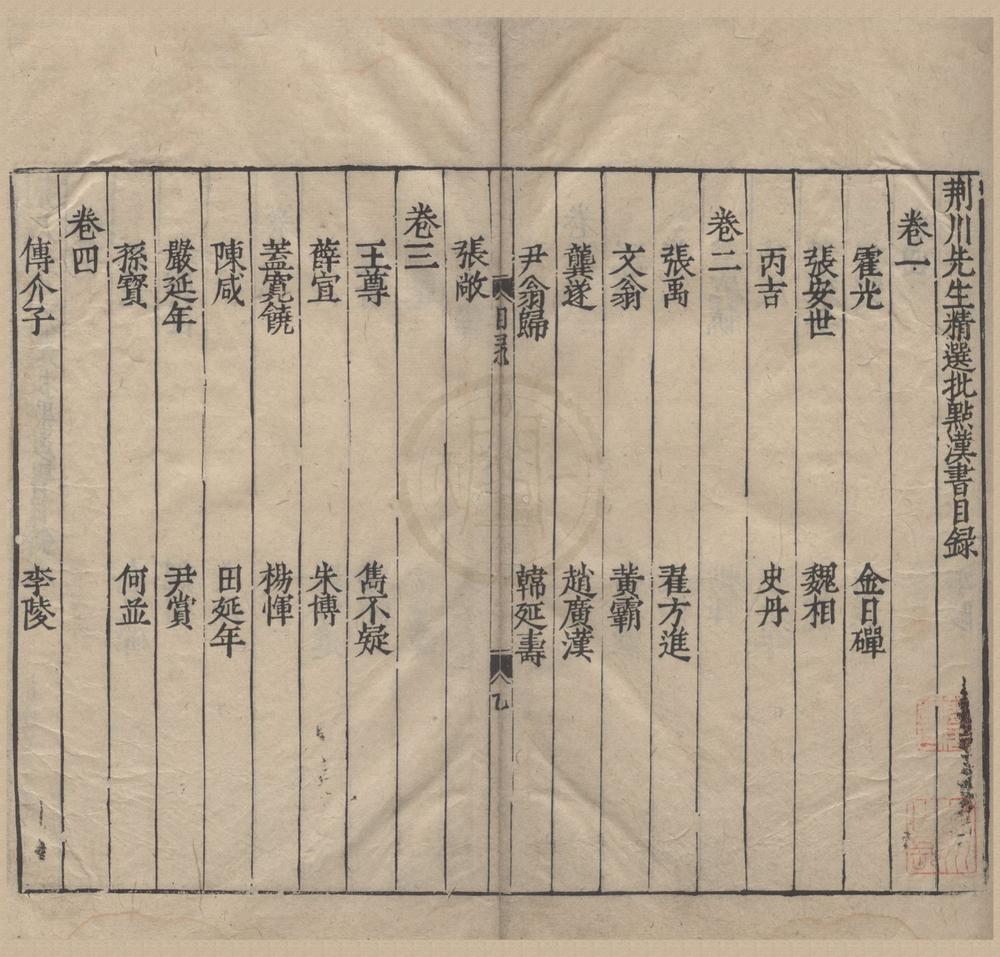 荆川先生精選批點漢書目録
卷一
霍光 金日磾
張安世 魏相
丙吉 史丹
卷二
張禹 翟方進
文翁 黃霸
龔遂 趙廣漢
尹翁歸 韓延壽
目录 乙
張敞
卷三
王尊 雋不疑
薛宣 朱博
蓋寬饒 楊惲
陳咸 田延年
嚴延年 尹賞
孫寳 何並
卷四
傳介子 李陵